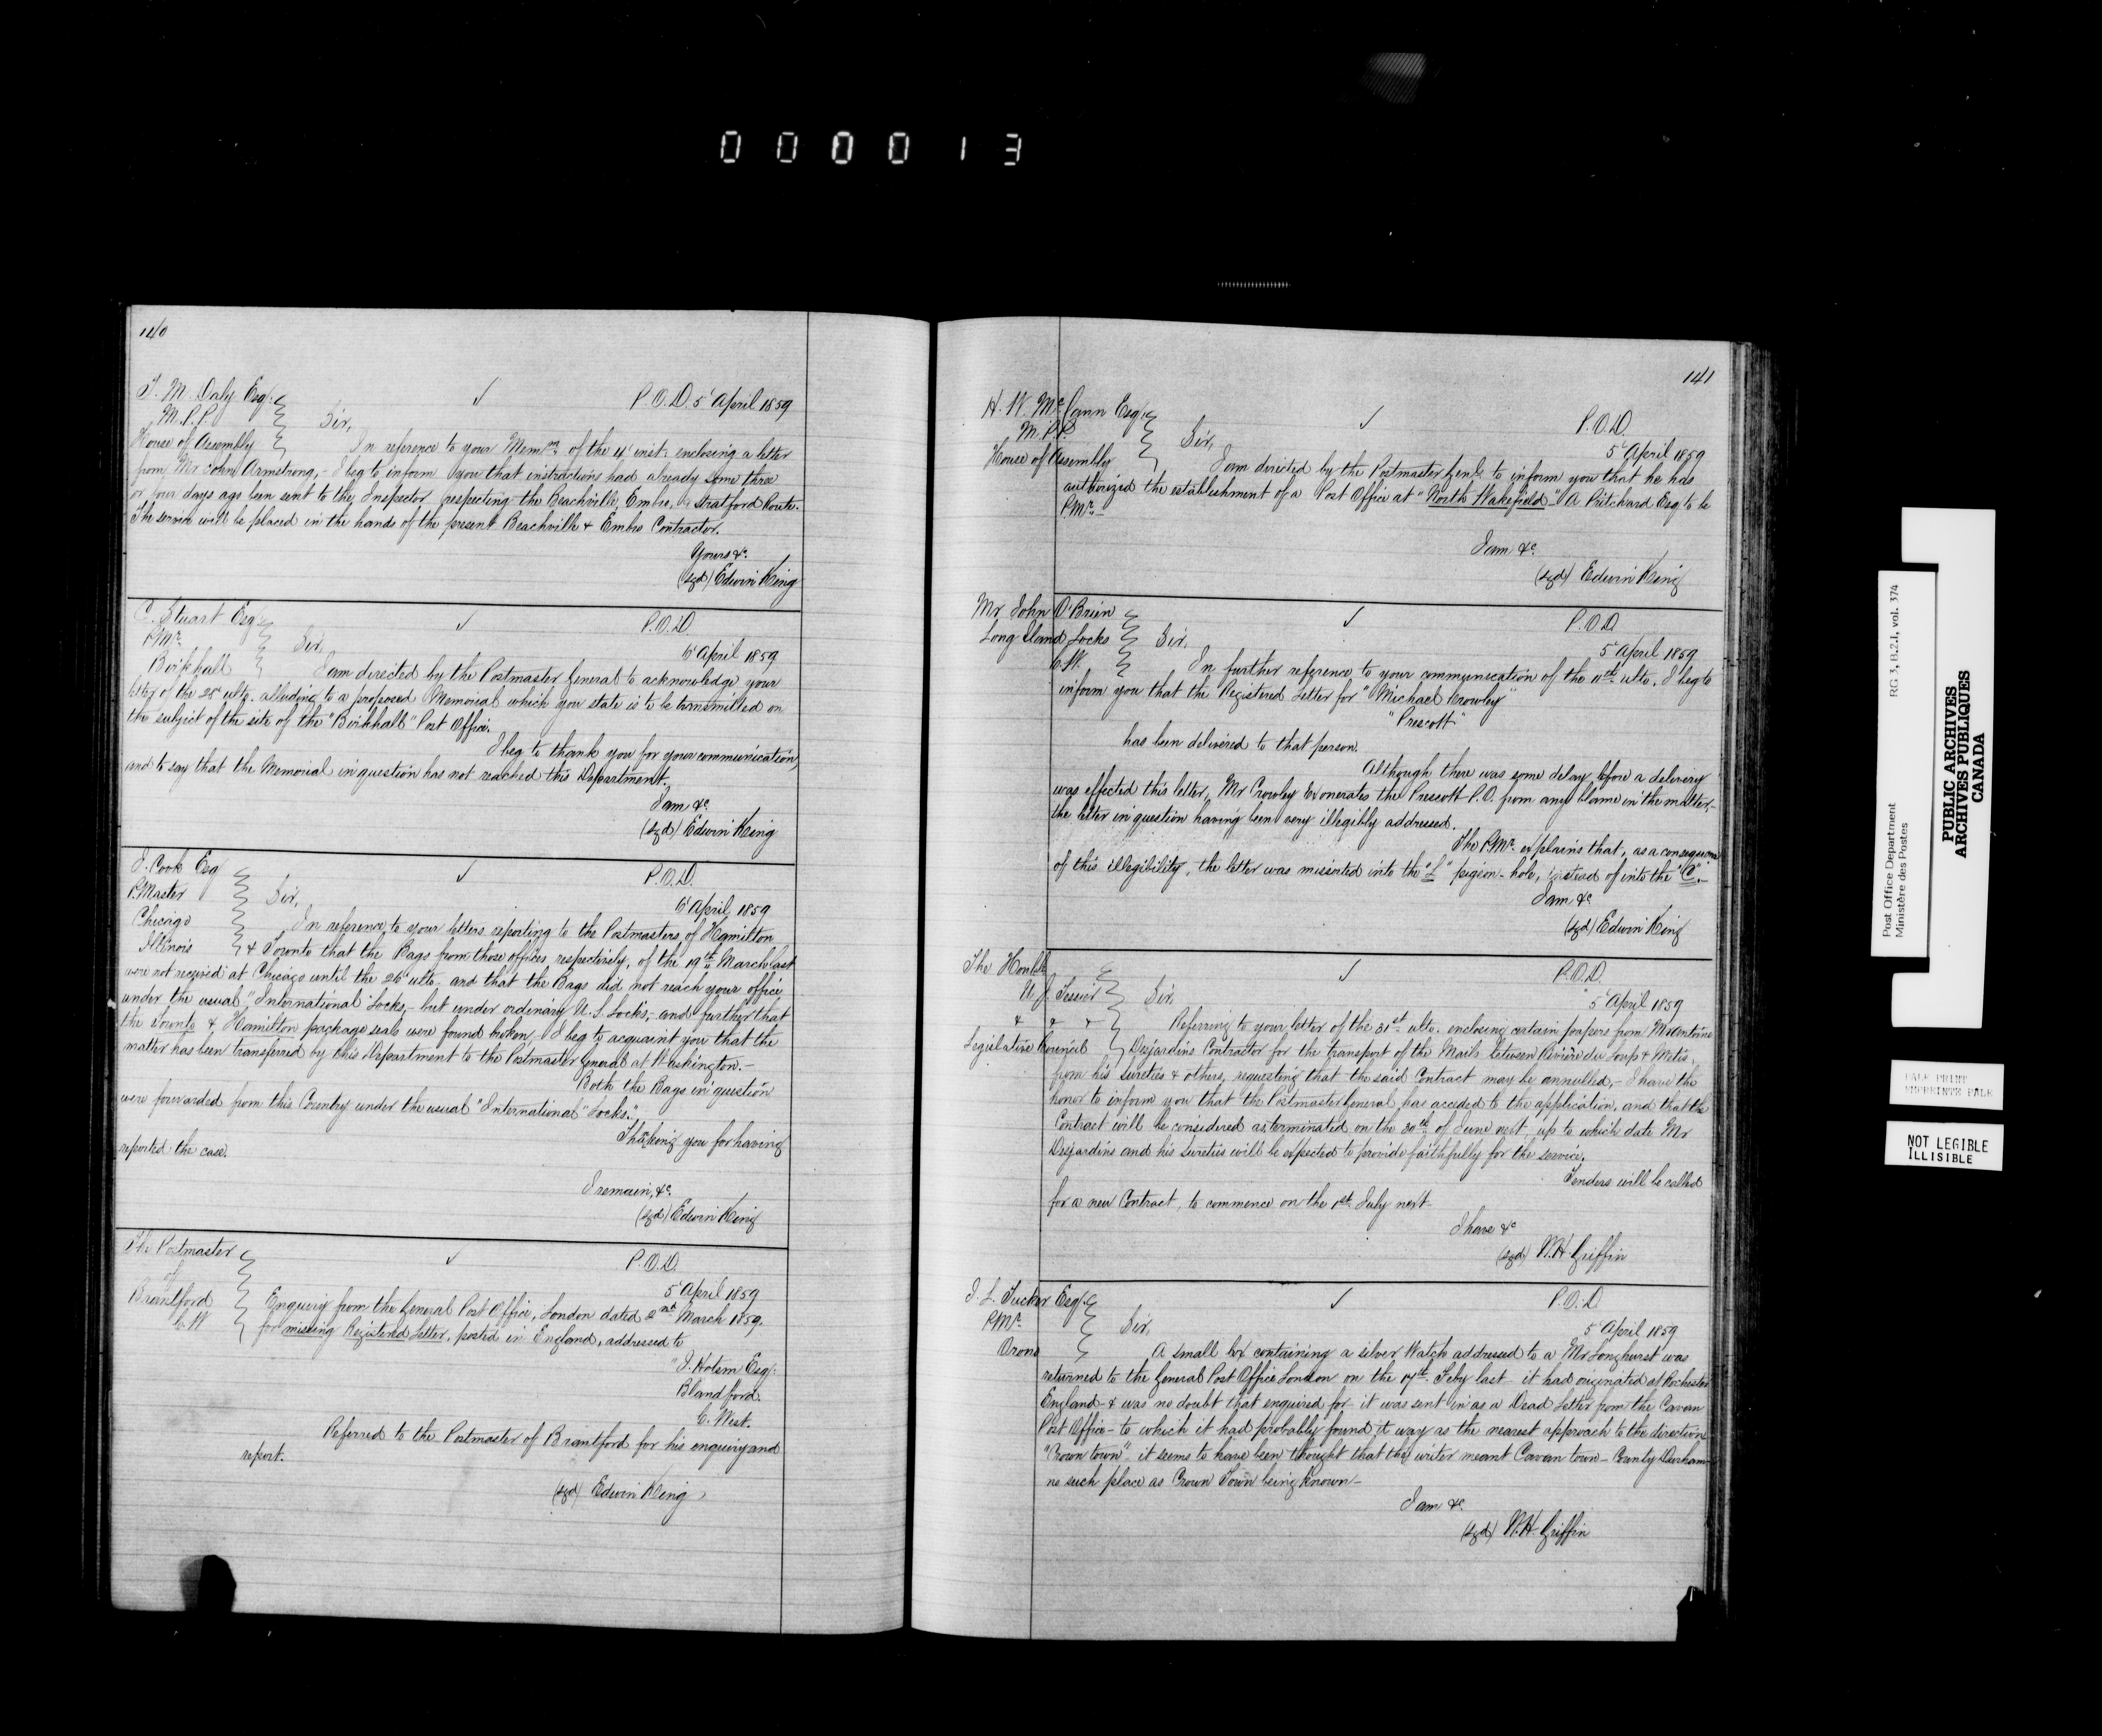 000013
140
T. M. Daly Esqr.
M.P.P.
House of Assembly
P.O.D. 5 April 1859
Sir,
In reference to your Memm. of the 4 inst. enclosing a letter
from Mr John Armstrong, - I beg to inform you that instructions had already some three
or four days ago been sent to the Inspector respecting the Beachville, Embro, & Stratford Route.
The service will be placed in the hands of the present Beachville & Embro Contractor.
Yours &c.
(sgd) Edwin King
C. Stuart Esqr.
P.Mr.
Birkhall
P.O.D.
6 April 1859
Sir,
I am directed by the Postmaster General to acknowledge your
letter of the 25 ulto. alluding to a proposed Memorial which you state is to be transmitted on
the subject of the site of the "Birkhall" Post Office.
I beg to thank you for your communication,
and to say that the Memorial in question has not reached this Department.
I am &c.
(sgd) Edwin King
I. Cook Esq
P.Master
Chicago
Illinois
P.O.D.
6 April, 1859
Sir,
In reference to your letters reporting to the Postmasters of Hamilton
& Toronto that the Bags from those offices, respectively, of the 19th March last
were not received at Chicago until the 26 ulto. and that the Bags did not reach your office
under the usual "International" Locks, - but under ordinary U.S. Locks, - and further that
the Toronto & Hamilton package seals were found broken, I beg to acquaint you that the
matter has been transferred by this Department to the Postmaster General at Washington. -
Both the Bags in question
were forwarded from this Country under the usual "International" Locks.
Thanking you for having
reported the case.
I remain, &c.
(sgd) Edwin King
The Postmaster
of
Brantford
C.W
P.O.D.
5 April 1859
Enquiry from the General Post Office, London dated 2nd March 1859.
for missing Registered Letter, posted in England, addressed to
"J. Hotsm Esqr.
Blandford.
C. West.
Referred to the Postmaster of Brantford for his enquiry and
report.
(sgd) Edwin King
141
H. W. McCann Esqr.
M.P.P.
House of Assembly
P.O.D.
5 April 1859
Sir,
I am directed by the Postmaster Genl. to inform you that he has
authorized the establishment of a Post Office at "North Wakefield" - A Pritchard Esq. to be
P.Mr. -
I am &c.
(sgd) Edwin King
Mr John O'Brien
Long Island Locks
C.W.
P.O.D
5 April 1859
Sir,
In further reference to your communication of the 11th ulto. I beg to
inform you that the Registered Letter for "Michael Crowley"
"Prescott"
has been delivered to that person.
Although there was some delay before a delivery
was effected this letter, Mr Crowley Exonerates the Prescott P.O. from any blame in the matter,
the letter in question having been very illegibly addressed.
The P.Mr. explains that, as a consequence
of this illegibility, the letter was missorted into the "L" pigeon-hole, instead of into the "C". -
I am &c
(sgd) Edwin King
The Honble
U J. Tessier
& & &
Legislative Council
P.O.D.
5 April 1859
Sir,
Referring to your letter of the 31st ulto. enclosing certain papers from Mr Antoine
Desjardins Contractor for the transport of the Mails between Rivière du Loup & Metis,
from his sureties & others, requesting that the said Contract may be annulled, - I have the
honor to inform you that the Postmaster General has acceded to the application, and that the
Contract will be considered as terminated on the 30th of June next, up to which date Mr
Desjardins and his sureties will be expected to provide faithfully for the service.
Tenders will be called
for a new Contract, to commence on the 1st July next.
I have &c
(sgd) W.H. Griffin
J. L. Tucker Esqr.
P.Mr.
Orono
P.O.D
5 April 1859
Sir,
A small box containing a silver Watch addressed to a Mr Longhurst was
returned to the General Post Office London on the 17th Feby last - it had originated at Rochester
England - & was no doubt that enquired for - it was sent in as a Dead Letter from the Cavan
Post Office - to which it had probably found it way as the nearest approach to the direction
"Crown town" - it seems to have been thought that the writer meant Cavan town - County Durham -
no such place as Crown Town being known -
I am &c.
(sgd) W.H. Griffin
Post Office Department
Ministère des Postes
RG 3, B.2.1, vol. 374
PUBLIC ARCHIVES
ARCHIVES PUBLIQUES
CANADA
PALE PRINT
EMPREINTE PALE
NOT LEGIBLE
ILLISIBLE